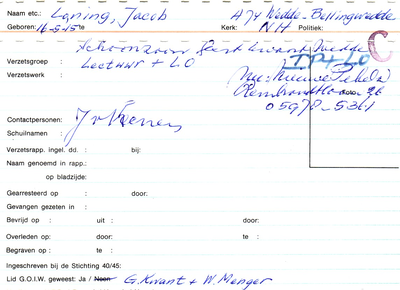 Naam etc.: Loning, Jacob A74 Wedde-Bellingwedde
Geboren: 16-5-15 te Kerk: NH Politiek:
Schoonzoon Geert Kwant Wedde C
Verzetsgroep : Lectuur + LO LP+LO
Verzetswerk : Nu: Nieuwe Pekela
Rembrandtlaan 26
05978-5361
Contactpersonen:
Schuilnamen :
Verzetsrapp. ingel. dd. : bij:
Naam genoemd in rapp.:
op bladzijde:
Gearresteerd op : door:
Gevangen gezeten in :
Bevrijd op : uit : door:
Overleden op: door: te :
Begraven op : te :
Ingeschreven bij de Stichting 40/45:
Lid G.O.I.W. geweest: Ja / Neen G. Kwant + W. Menger